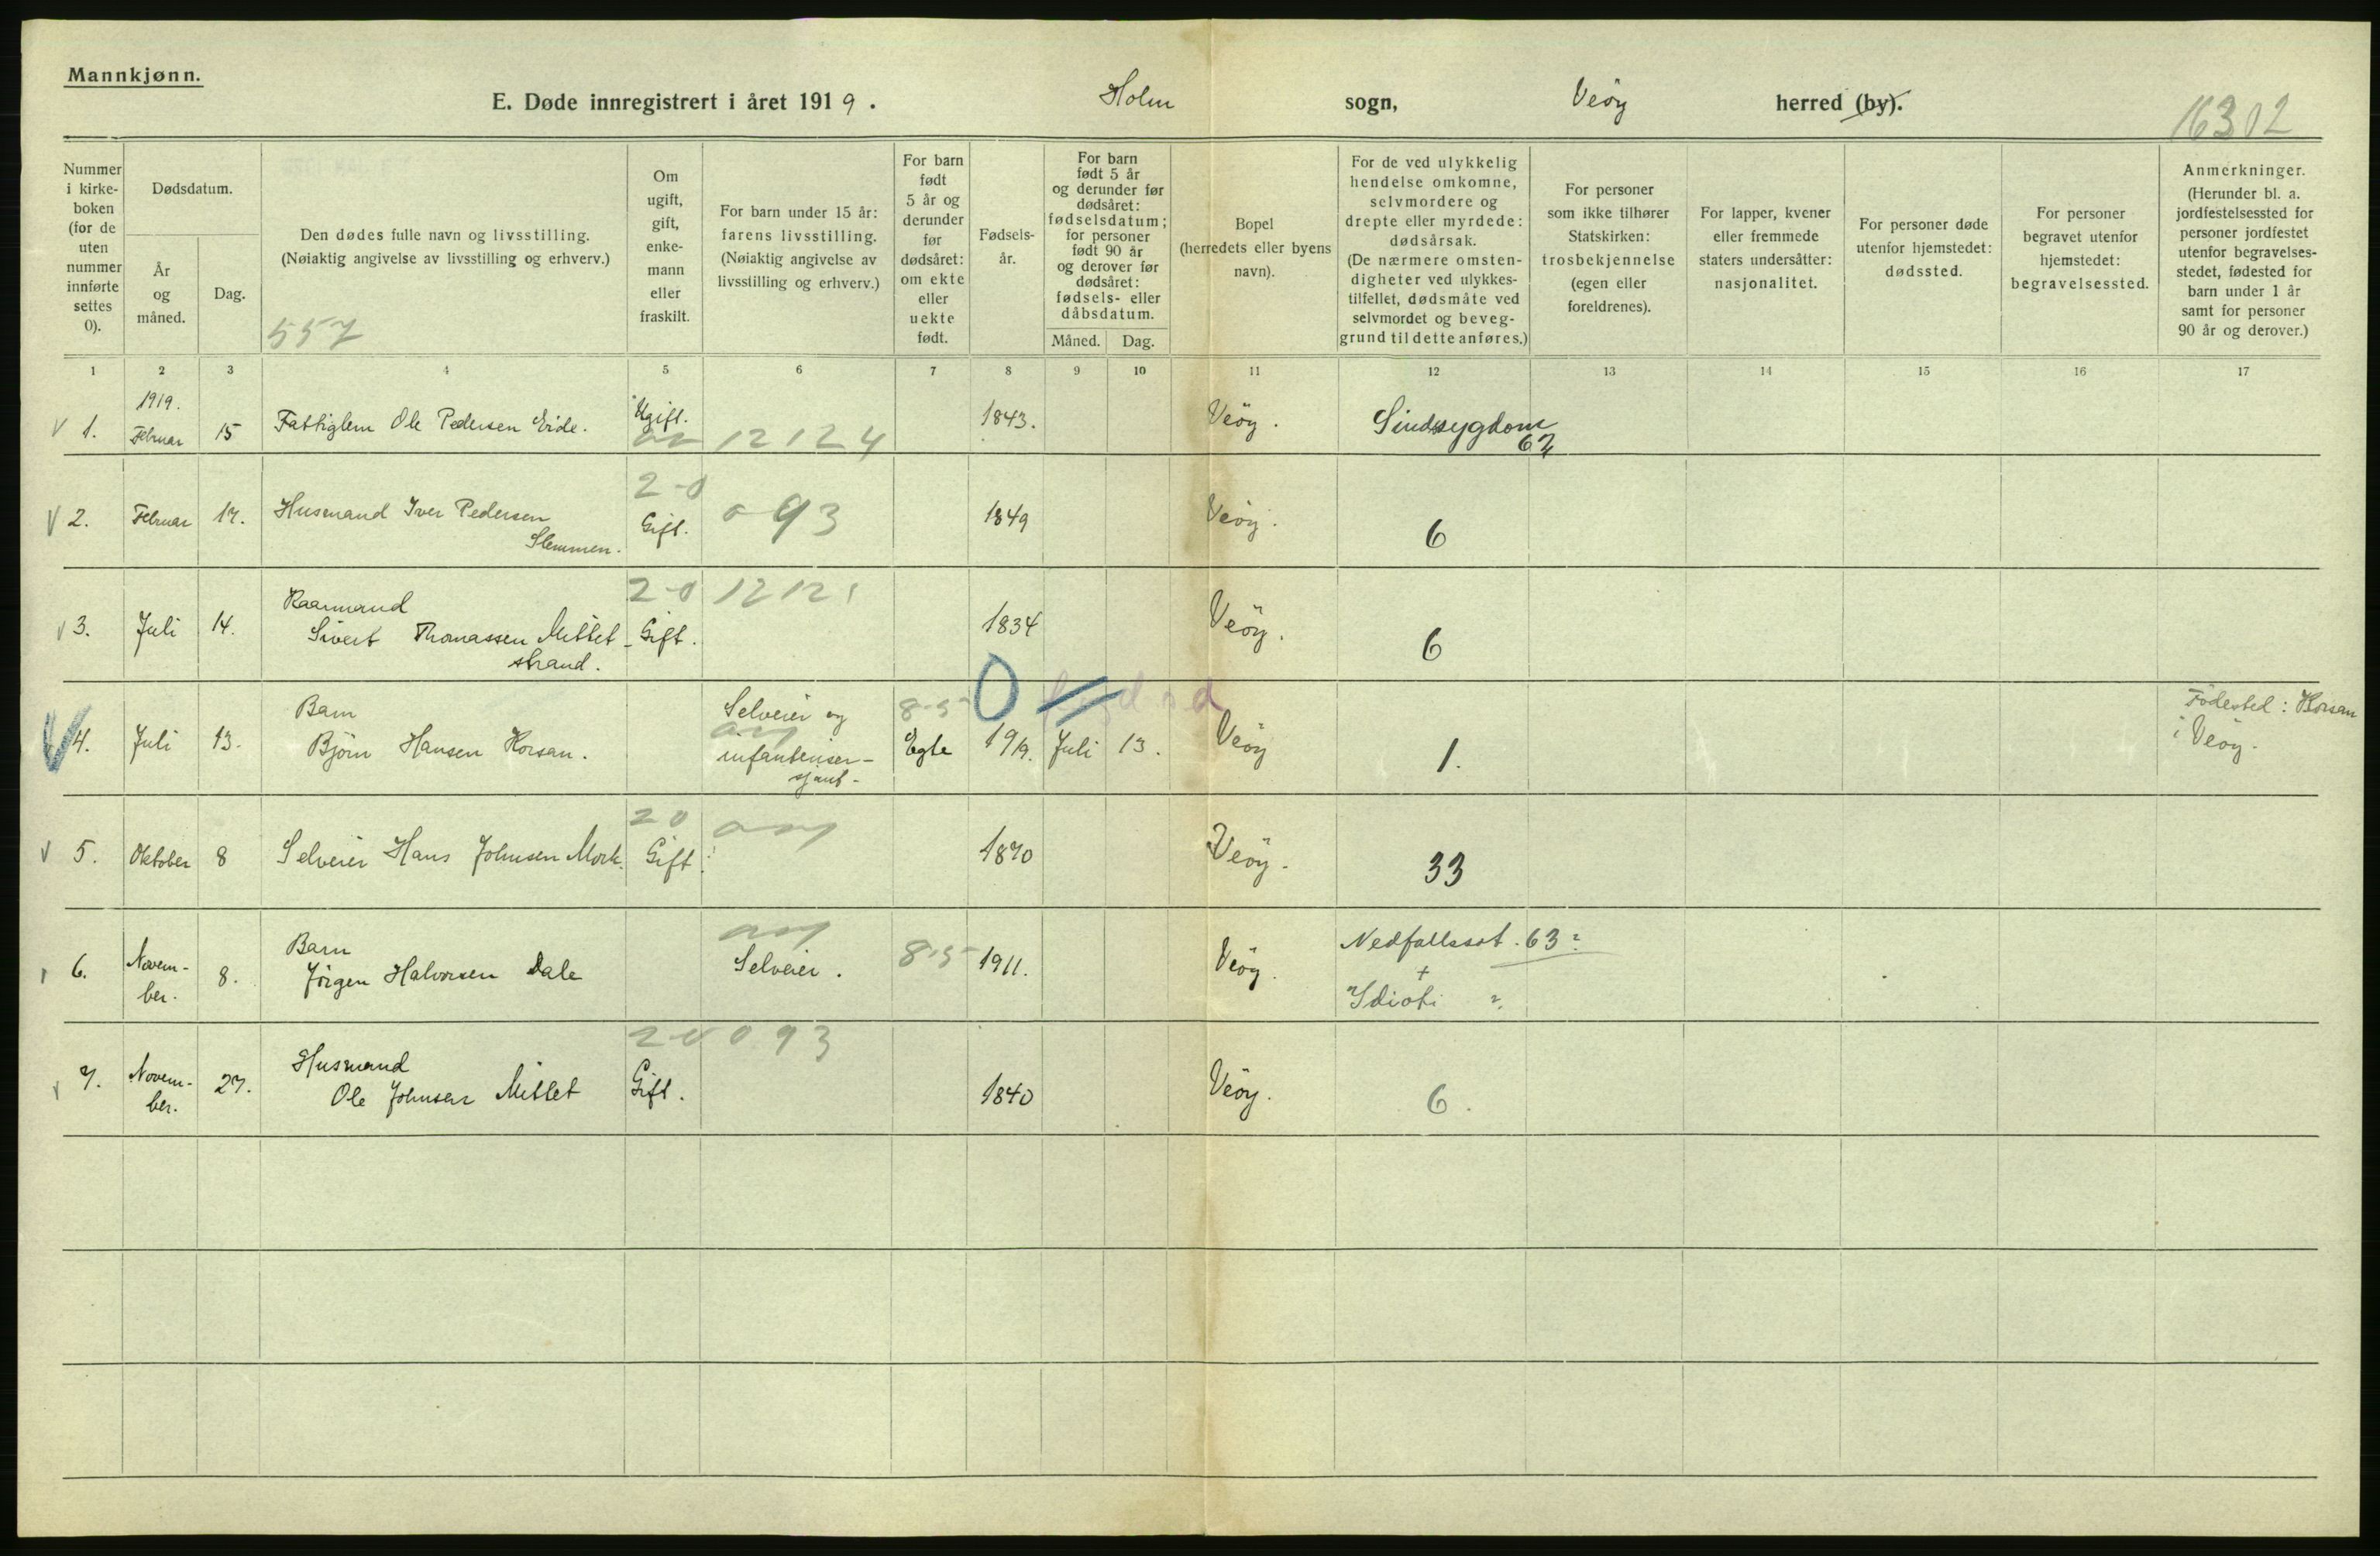 Mannkjønn.
E. Døde innregistrert i året 1919. Holm sogn, Veöy herred (by).
16302
Nummer i kirke- boken (for de uten nummer innførte settes 0).
Dødsdatum.
År og måned.
Dag.
Den dødes fulle navn og livsstilling.
(Nøiaktig angivelse av livsstilling og erhverv.)
557
Om ugift, gift, enke- mann eller fraskilt.
For barn under 15 år: farens livsstilling. (Nøiaktig angivelse av livsstilling og erhverv.)
For barn født 5 år og derunder før dødsåret: om ekte eller uekte født.
Fødsels- år.
For barn født 5 år og derunder før dødsåret: fødselsdatum; for personer født 90 år og derover før dødsåret: fødsels- eller dåbsdatum.
Måned. Dag.
Bopel (herredets eller byens navn).
For de ved ulykkelig hendelse omkomne, selvmordere og drepte eller myrdede: dødsårsak. (De nærmere omsten- digheter ved ulykkes- tilfellet, dødsmåte ved selvmordet og beveg- grund til dette anføres.)
For personer som ikke tilhører Statskirken: trosbekjennelse (egen eller foreldrenes).
For lapper, kvener eller fremmede staters undersåtter: nasjonalitet.
For personer døde utenfor hjemstedet: dødssted.
For personer begravet utenfor hjemstedet: begravelsessted.
Anmerkninger. (Herunder bl. a. jordfestelsessted for personer jordfestet utenfor begravelses- stedet, fødested for barn under 1 år samt for personer 90 år og derover.)
1 2 3 4 5 6 7 8 9 10 11 12 13 14 15 16 17
1919.
V 1. Februar 15 Fattiglem Ole Pedersen Eide. Ugift. 12124 1843. Veöy. Sindssygdom
62
2-0
V 2. Februar 17. Husmand Iver Pedersen Gift. 093 1849 Veöy. 6
Slemmen.
2-0 1212
Raamand
V 3. Juli 14. Sivert Thomassen Mittet- Gift. 1834 Veöy. 6
strand.
Barn Selveier og 8-5 0 Födested: Horsan
V 4. Juli 13. Björn Hansen Horsan. infanteriser- Egte 1919. Juli 13. Veöy 1. i Veöy.
sjant-
20
V 5. Oktober 8 Selveier Hans Johnsen Mork. Gift. 1870 Veöy. 33
Barn Nedfallssot. 63?
6. Novem- 8. Jörgen Halvorsen Dale Selveier. 8-5 1911. Veöy. +
ber. Idioti ?
20 093
Husmand
V 7. Novem- 27. Ole Johnsen Mittet Gift. 1840 Veöy. 6.
ber.